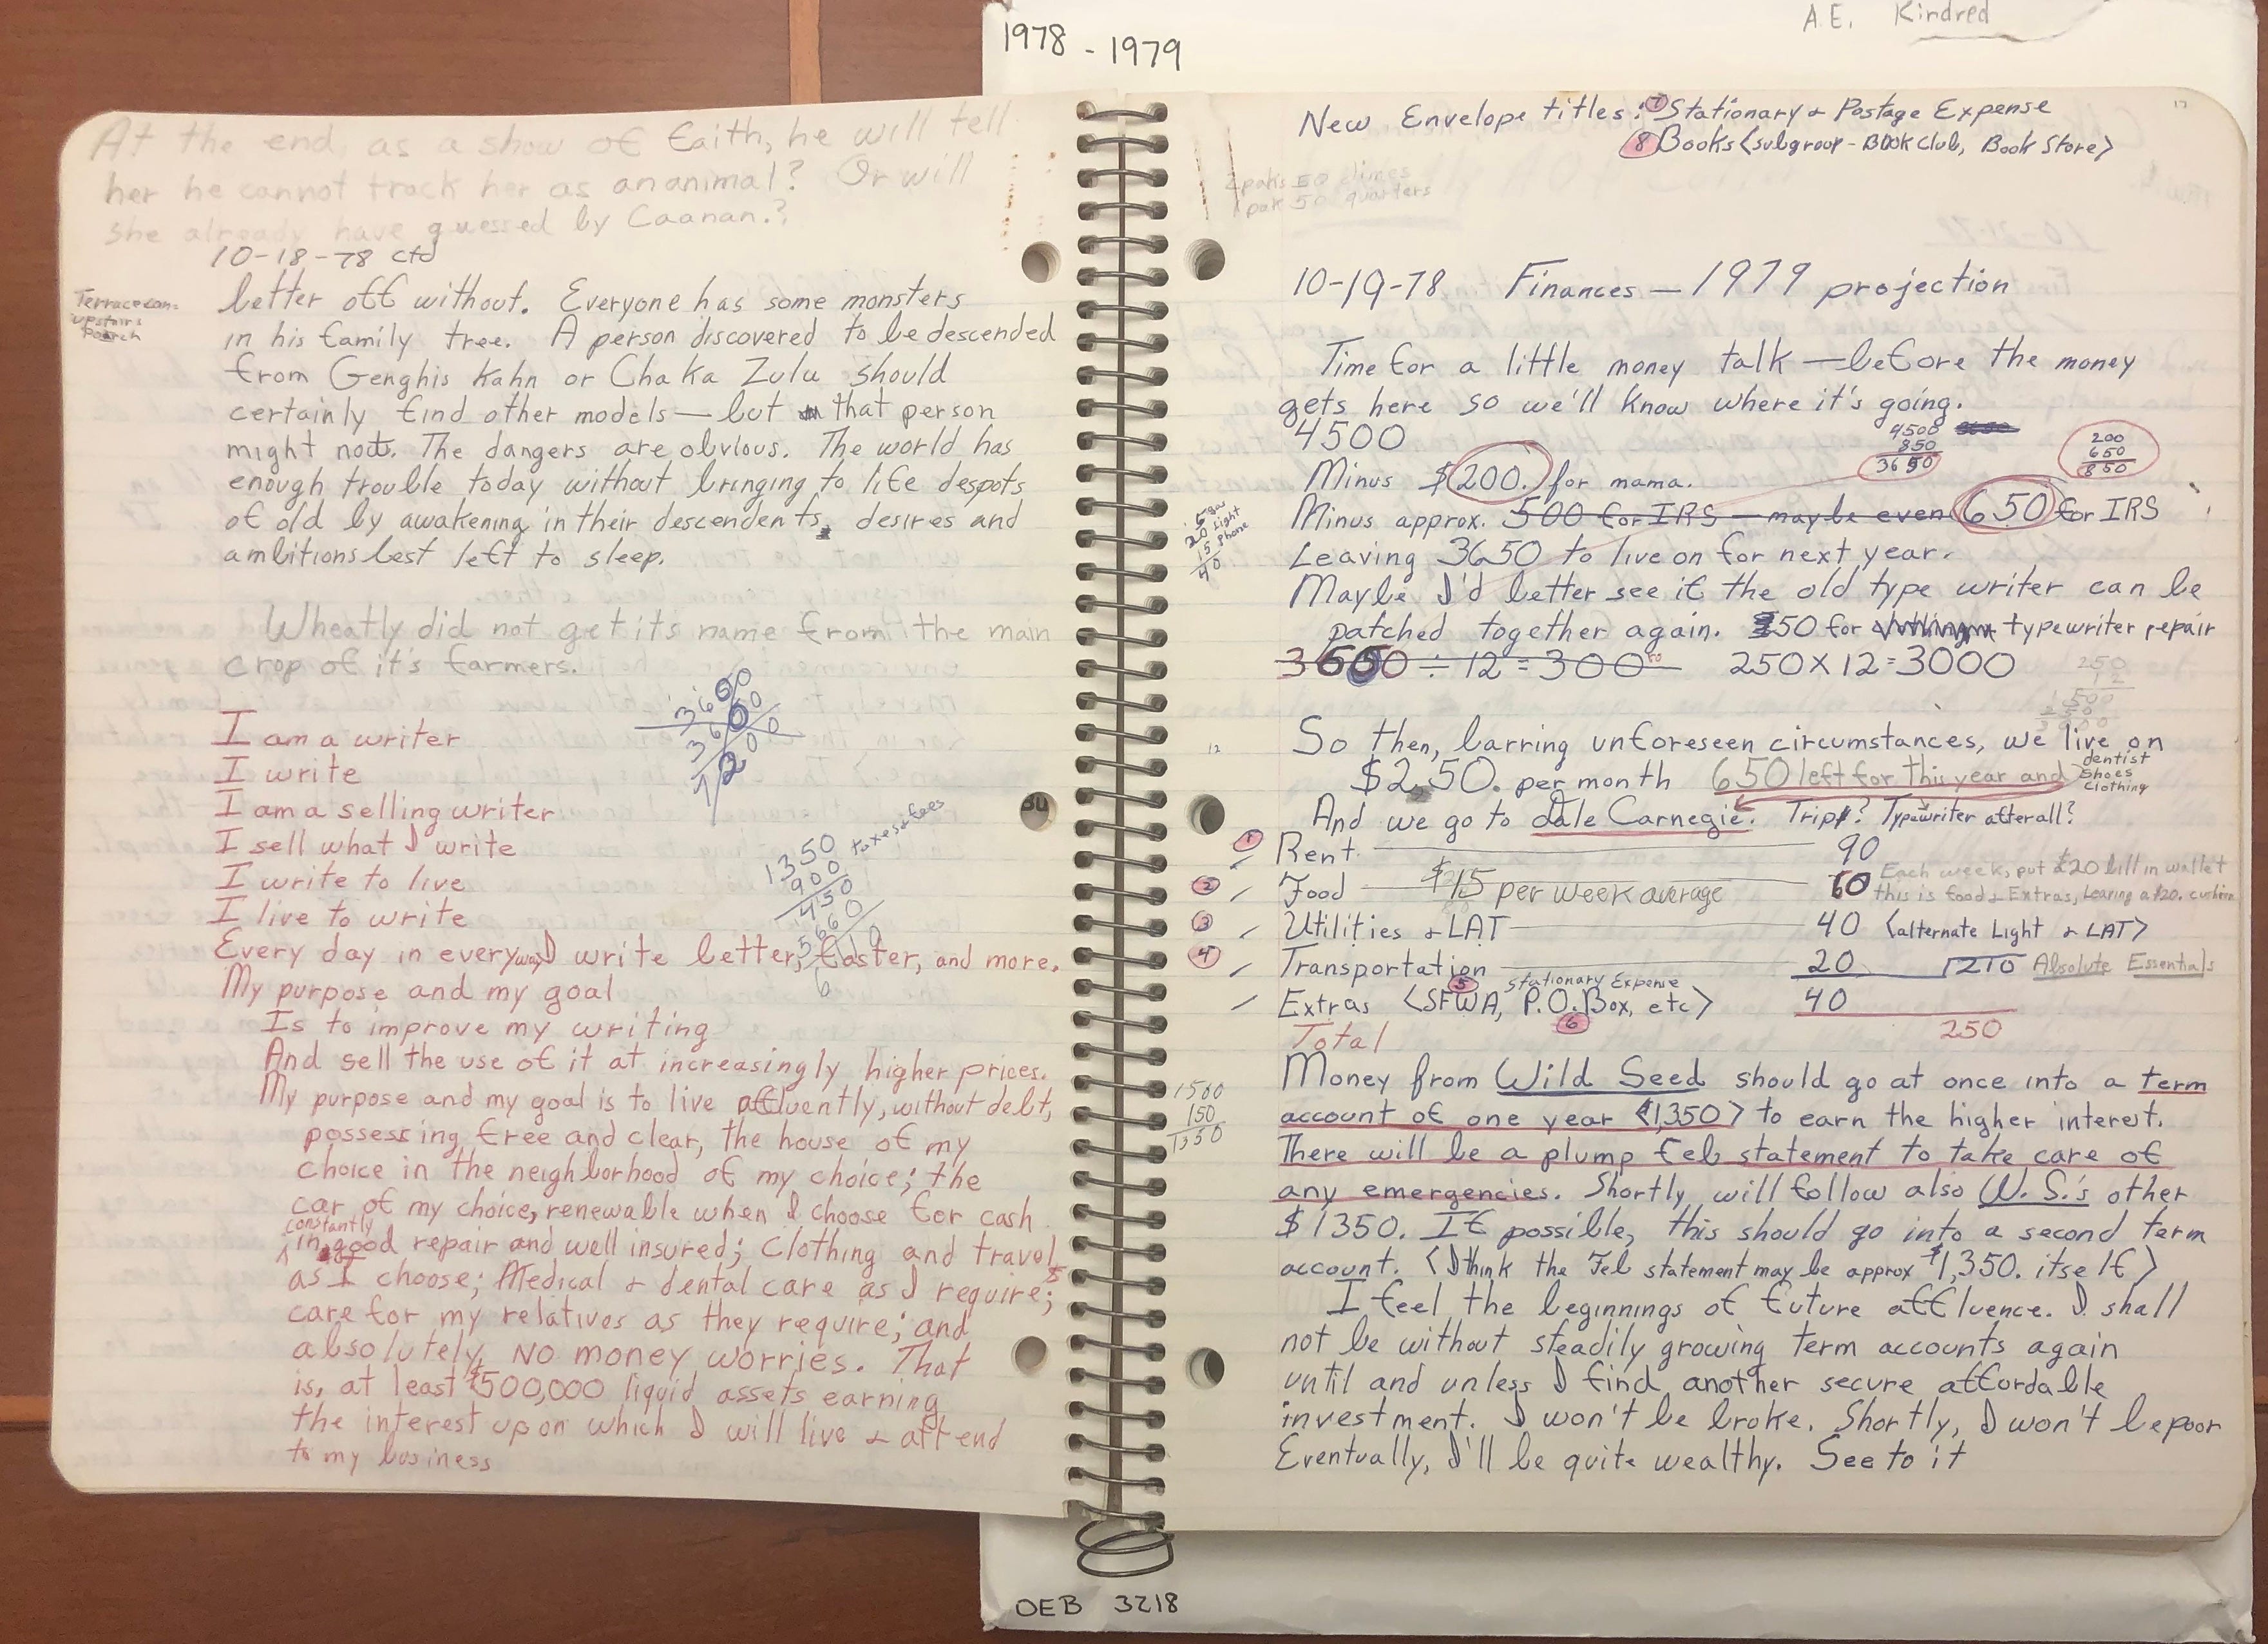 1978 - 1979
A.E. Kindred
At the end, as a show of faith, he will tell
her he cannot track her as an animal? Or will
she already have guessed by Caanan.?
10-18-78 ctd
better off without. Everyone has some monsters
in his family tree. A person discovered to be descended
from Genghis Kahn or Chaka Zulu should
certainly find other models — but that person
might not. The dangers are obvious. The world has
enough trouble today without bringing to life despots
of old by awakening in their descendents, desires and
ambitions best left to sleep.
upstairs
Porch
Wheatly did not get its name from the main
crop of it's farmers.
3600
3600
7200
I am a writer
I write
I am a selling writer
I sell what I write
I write to live
I live to write
1350 taxes & fees
900
450
Every day in every way I write better, faster, and more.
My purpose and my goal
Is to improve my writing
And sell the use of it at increasingly higher prices.
My purpose and my goal is to live affluently, without debt,
possessing free and clear, the house of my
choice in the neighborhood of my choice; the
car of my choice, renewable when I choose for cash
constantly
in good repair and well insured; Clothing and travel
as I choose; Medical & dental care as I require;
care for my relatives as they require; and
absolutely NO money worries. That
is, at least $500,000 liquid assets earning
the interest upon which I will live & attend
to my business
New Envelope titles: 7 Stationary & Postage Expense
8 Books <subgroup - BOOK Club, Book Store>
2 paks 50 dimes
1 pak 50 quarters
10-19-78 Finances — 1979 projection
Time for a little money talk — before the money
gets here so we'll know where it's going.
4500
4500
850
3650
200
650
850
Minus $200. for mama.
Minus approx. 500 for IRS — maybe even 650 for IRS
5 gas
20 light
15 phone
40
Leaving 3650 to live on for next year.
Maybe I'd better see if the old type writer can be
patched together again. $50 for typewriter repair
3600 ÷ 12 = 300 250 X 12 = 3000
250
12
500
250
3000
12
So then, barring unforeseen circumstances, we live on
$250. per month 650 left for this year and dentist
Shoes
Clothing
And we go to Dale Carnegie. Trip? Typewriter after all?
1 Rent 90
2 Food $15 per week average 60 Each week, put $20 bill in wallet
this is food & Extras, leaving a $20. cushion
3 Utilities & LAT 40 <alternate Light & LAT>
4 Transportation 20 210 Absolute Essentials
5 Stationary Expense
Extras <SFWA, P.O. Box, etc> 40
6
Total 250
Money from Wild Seed should go at once into a term
account of one year <1,350> to earn the higher interest.
1500
150
1350
There will be a plump Feb statement to take care of
any emergencies. Shortly will follow also W. S.'s other
$1350. If possible, this should go into a second term
account. <I think the Feb statement may be approx $1,350. itself>
I feel the beginnings of future affluence. I shall
not be without steadily growing term accounts again
until and unless I find another secure affordable
investment. I won't be broke. Shortly, I won't be poor
Eventually, I'll be quite wealthy. See to it
OEB 3218